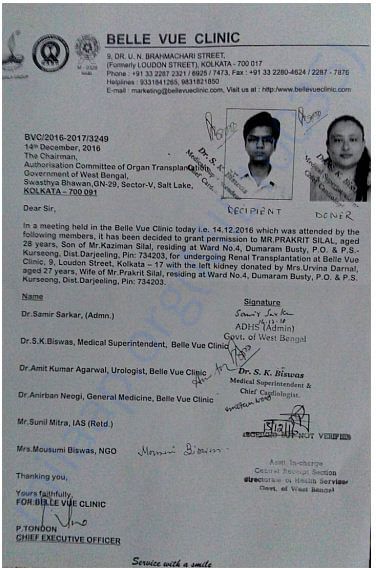 BELLE VUE CLINIC
9, DR. U. N. BRAHMACHARI STREET,
(Formerly LOUDON STREET), KOLKATA - 700 017
Phone : +91 33 2287 2321 / 6925 / 7473, Fax : +91 33 2280-4624 / 2287 - 7876
Helplines : 9331841265, 9831821850
E-mail : marketing@bellevueclinic.com, Visit us at : http:/www.bellevueclinic.com
BVC/2016-2017/3249
14th December, 2016
The Chairman,
Authorisation Committee of Organ Transplantation
Government of West Bengal,
Swasthya Bhawan,GN-29, Sector-V, Salt Lake,
KOLKATA - 700 091
Dr. S. K. Biswas
Medical Superintendent
Chief Cardiologist
RECIPIENT
DONER
Dear Sir,
In a meeting held in the Belle Vue Clinic today i.e. 14.12.2016 which was attended by the
following members, it has been decided to grant permission to MR.PRAKRIT SILAL, aged
28 years, Son of Mr.Kaziman Silal, residing at Ward No.4, Dumaram Busty, P.O. & P.S.-
Kurseong, Dist.Darjeeling, Pin: 734203, for undergoing Renal Transplantation at Belle Vue
Clinic, 9, Loudon Street, Kolkata – 17 with the left kidney donated by Mrs.Urvina Darnal,
aged 27 years, Wife of Mr.Prakril Silal, residing at Ward No.4, Dumaram Busty, P.O. & P.S.
Kurseong, Dist.Darjeeling, Pin: 734203.
Name
Signature
Dr.Samir Sarkar, (Admn.)
Samir Sarkar
ADHS (Admin)
Govt. of West Bengal
Dr.S.K.Biswas, Medical Superintendent, Belle Vue Clinic
Dr.Amit Kumar Agarwal, Urologist, Belle Vue Clinic
Dr. S. K. Biswas
Medical Superintendent &
Chief Cardiologist.
Dr.Anirban Neogi, General Medicine, Belle Vue Clinic
Mr.Sunil Mitra, IAS (Retd.)
NOT VERIFIED
Mrs.Mousumi Biswas, NGO
Mousumi Biswas
Asstt. In-charge
Central Receipt Section
Directorate of Health Services
Govt. of West Bengal
Thanking you,
Yours faithfully,
FOR BELLE VUE CLINIC
P.TONDON
CHIEF EXECUTIVE OFFICER
Service with a smile